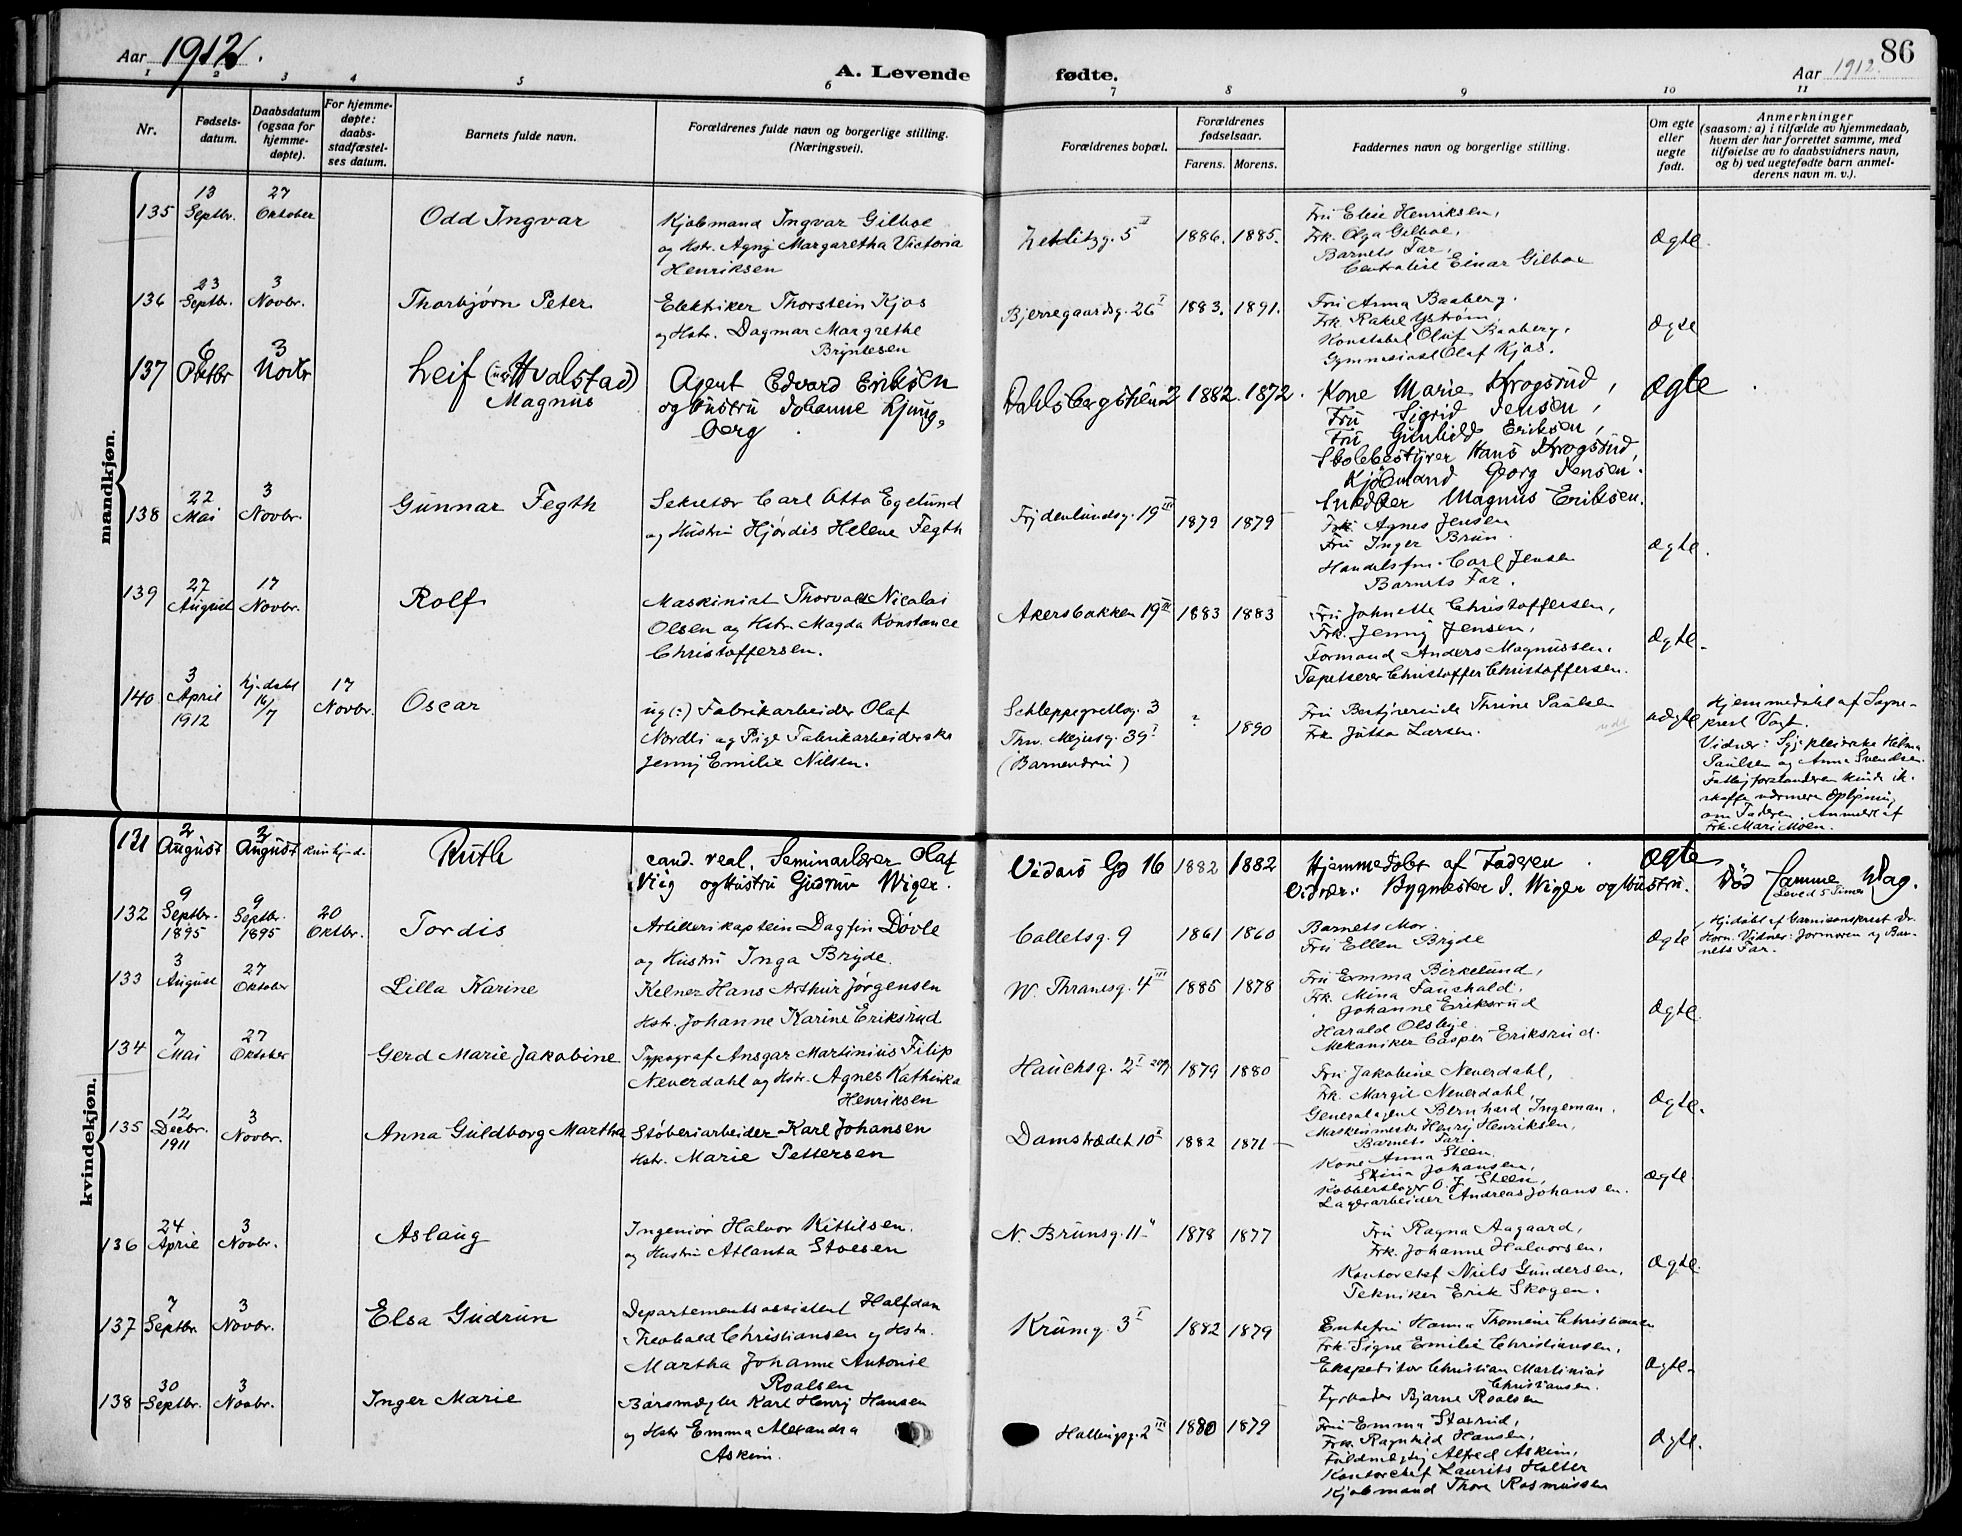 Aar 1912.
A. Levende
fødte.
Aar 1912.
86
1 2 3 4 5 6 7 8 9 10 11
Nr.
Fødsels-
datum.
Daabsdatum
(ogsaa for
hjemme-
døpte).
For hjemme-
døpte:
daabs-
stadfæstel-
ses datum.
Barnets fulde navn.
Forældrenes fulde navn og borgerlige stilling.
(Næringsvei).
Forældrenes bopæl.
Forældrenes
fødselsaar.
Farens. Morens.
Faddernes navn og borgerlige stilling.
Om egte
eller
uegte
født.
Anmerkninger
(saasom: a) i tilfælde av hjemmedaab,
hvem der har forrettet samme, med
tilføielse av to daabsvidners navn,
og b) ved uegtefødte barn anmel-
derens navn m. v.).
mandkjøn.
135
13
Septbr.
27
Oktober
Odd Ingvar
Kjøbmand Ingvar Gilboe
og Hstr. Agny Margaretha Victoria
Henriksen
Zetlitzg. 5 II
1886. 1885.
Fru Elise Henriksen,
Frk. Olga Gilboe,
Barnets Far,
Einar Gilboe
Ægte.
136
23
Septbr.
3
Novbr.
Thorbjørn Peter
Elektriker Thorstein Kjos
og Hstr. Dagmar Margrethe
Bryntesen
Bjerregaardsg. 26 I
1883. 1891.
Fru Anna Baaberg.
Frk. Rakel Ystrøm,
Konstabel Oluf Baaberg,
Gymnasiast Olaf Kjos.
Ægte
137
6
Oktbr
3
Novbr
Leif (Hvalstad)
Magnus
Agent Edvard Eriksen
og Hustru Johanne Ljung-
berg.
Dahlsbergstien 2
1882. 1872.
Kone Marie Krogsrud,
Fru Sigrid Jensen,
Fru Gunhild Eriksen,
Skolebestyrer Hans Krogsrud,
Kjøbmand Georg Jensen.
Snedker Magnus Eriksen.
Ægte
138
22
Mai
3
Novbr.
Gunnar Fegth
Sekretær Carl Otto Egelund
og Hustru Hjørdis Helene Fegth
Frydenlundsg. 19 III
1879 1879
Frk. Agnes Jensen
Fru Inger Brun.
Handelsfm. Carl Jensen
Barnets Far.
Ægte.
139
27
August
17
Novbr.
Rolf
Maskinist Thorvald Nicolai
Olsen og Hstr. Magda Konstance
Christoffersen.
Akersbakken 19 III
1883 1883
Fru Johnette Christoffersen,
Frk. Jenny Jensen,
Formand Anders Magnussen,
Tapetserer Christoffer Christoffersen.
Ægte.
140
3
April
1912
hj.døbt
16/7
17
Novbr.
Oscar
ug(:) Fabrikarbeider Olaf
Nordli og Pige Fabrikarbeiderske
Jenny Emilie Nilsen.
Schleppegrellsg. 3
Thv. Meyersg. 39 I
? 1890
Fru Bestyrerinde Thrine Paulsen
Frk. Jutta Larsen.
uægte
Hjemmedøbt af Sogne-
prest Vogt.
Vidner: Sygepleierske Helma
Paulsen og Anna Svendsen.
Fattigforstanderen kunde ik.
skaffe nærmere Oplysning
om Faderen. Anmeldt af
Frk. Mari Moen.
kvindekjøn.
131
2
August
2
August
kun hj-d.
Ruth
cand. real. Seminarlærer Olaf
Viig og Hustru Gudrun Wiger.
Vidars Gd 16
1882 1882
Hjemmedøbt af Faderen.
Vidner: Bygmester J. Wiger og Hustru.
Ægte
Død samme Dag.
(Leved 5 Timer)
132
9
Septbr.
1895
9
Septbr.
1895
20
Oktbr.
Tordis
Artillerikaptein Dagfin Døvle
og Hustru Inga Bryde.
Colletsg. 9
1861 1860
Barnets Mor,
Fru Ellen Bryde
Ægte
Hjdøbt af Garnisonsprest Dr.
Horn. Vidner: Jormoren og Bar-
nets Far.
133
3
August
27
Oktober
Lilla Karine
Kelner Hans Arthur Jørgensen
Hstr. Johanne Karine Eriksrud
W. Thranesg. 4 III
1885 1878
Fru Emma Birkelund,
Frk. Mina Fauchald,
Johanne Eriksrud
Harald Olsbye.
Mekaniker Casper Eriksrud.
Ægte.
134
7
Mai
27
Oktober
Gerd Marie Jakobine
Typograf Ansgar Martinius Filip
Neverdahl og Hstr. Agnes Kathinka
Henriksen
Hauchsg. 2 I opg
1879 1880
Fru Jakobine Neverdahl,
Frk. Margit Neverdahl,
Generalagent Bernhard Ingeman.
Maskinmester Henry Henriksen,
Barnets Far.
Ægte.
135
12
Decbr.
1911
3
Novbr.
Anna Guldborg Martha
Støberiarbeider Karl Johansen
Hstr. Marie Pettersen
Damstrædet 10 I
1882 1871
Kone Anna Steen,
" Stina Johansen,
Kobberslager O. J. Steen,
Lagerarbeider Andreas Johansen.
Ægte.
136
24
April
3
Novbr.
Aslaug
Ingeniør Halvor Kittilsen.
og Hustru Atlanta Stoesen
N. Brunsg. 11
1878 1877
Fru Ragna Aagaard,
Frk. Johanne Halvorsen.
Kontorchef Niels Gundersen,
Tekniker Erik Skogen.
Ægte.
137
7
Septbr.
3
Novbr.
Elsa Gudrun
Departementsassistent Halfdan
Theobald Christiansen og Hstr.
Martha Johanne Antonie
Roalsen
Krumg. 3 I
1882 1879
Enkefru Hanna Thomine Christiansen
Frk. Signe Emilie Christiansen,
Ekspeditør Christian Martinius
Christiansen.
Bjarne Roalsen
Ægte.
138
30
Septbr.
3
Novbr.
Inger Marie
Børsmægler Karl Henry Hansen
og Hstr Emma Alexandra
Askim.
Hallingsg. 2 III
1880 1879
Fru Emma Starud,
Frk. Ragnhild Hansen,
Fuldmægtig Alfred Askim,
Kontorchef Laurits Holter
Kjøbmand Thore Rasmussen
Ægte.